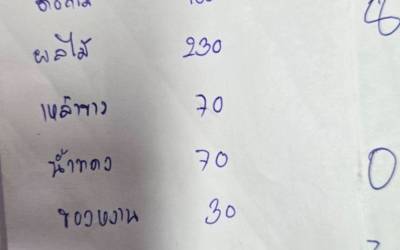 ผลไม้ 230
เหล้าขาว 70
น้ำแดง 70
ของหวาน 30